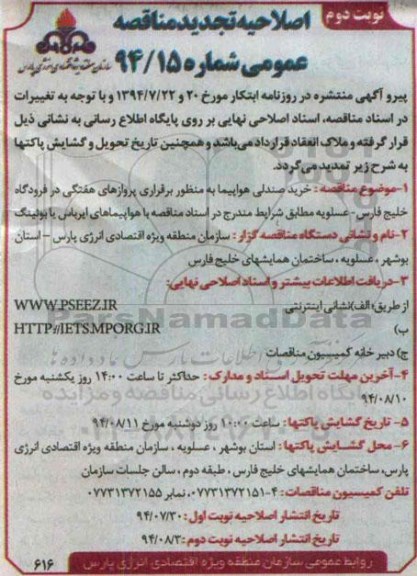 نوبت دوم
اصلاحیه تجدید مناقصه
عمومی شماره ۹۴/۱۵
پیرو آگهی منتشره در روزنامه ابتکار مورخ ۲۰ و ۱۳۹۴/۷/۲۲ و با توجه به تغییرات
در اسناد مناقصه، اسناد اصلاحی نهایی بر روی پایگاه اطلاع رسانی به نشانی ذیل
قرار گرفته و ملاک انعقاد قرارداد می‌باشد و همچنین تاریخ تحویل و گشایش پاکتها
به شرح زیر تمدید می‌گردد.
۱-موضوع مناقصه : خرید صندلی هواپیما به منظور برقراری پروازهای هفتگی در فرودگاه
خلیج فارس - عسلویه مطابق شرایط مندرج در اسناد مناقصه با هواپیماهای ایرباس یا بوئینگ
۲-نام و نشانی دستگاه مناقصه گزار : سازمان منطقه ویژه اقتصادی انرژی پارس - استان
بوشهر ، عسلویه ، ساختمان همایشهای خلیج فارس
۳-دریافت اطلاعات بیشتر و اسناد اصلاحی نهایی:
از طریق :الف)نشانی اینترنتی WWW.PSEEZ.IR
ب) HTTP://IETS.MPORG.IR
ج) دبیر خانه کمیسیون مناقصات
۴-آخرین مهلت تحویل اسناد و مدارک : حداکثر تا ساعت ۱۴:۰۰ روز یکشنبه مورخ
۹۴/۰۸/۱۰
۵- تاریخ گشایش پاکتها : ساعت ۱۰:۰۰ روز دوشنبه مورخ ۹۴/۰۸/۱۱
۶- محل گشایش پاکتها : استان بوشهر ، عسلویه ، سازمان منطقه ویژه اقتصادی انرژی
پارس، ساختمان همایشهای خلیج فارس ، طبقه دوم ، سالن جلسات سازمان
تلفن کمیسیون مناقصات : ۴-۰۷۷۳۱۳۷۲۱۵۱، نمابر ۰۷۷۳۱۳۷۲۱۵۵
تاریخ انتشار اصلاحیه نوبت اول : ۹۴/۰۷/۳۰
تاریخ انتشار اصلاحیه نوبت دوم : ۹۴/۰۸/۳
روابط عمومی سازمان منطقه ویژه اقتصادی انرژی پارس
۶۱۶
ParsNamadData